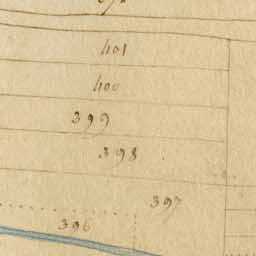 401
400
399
398
397
396